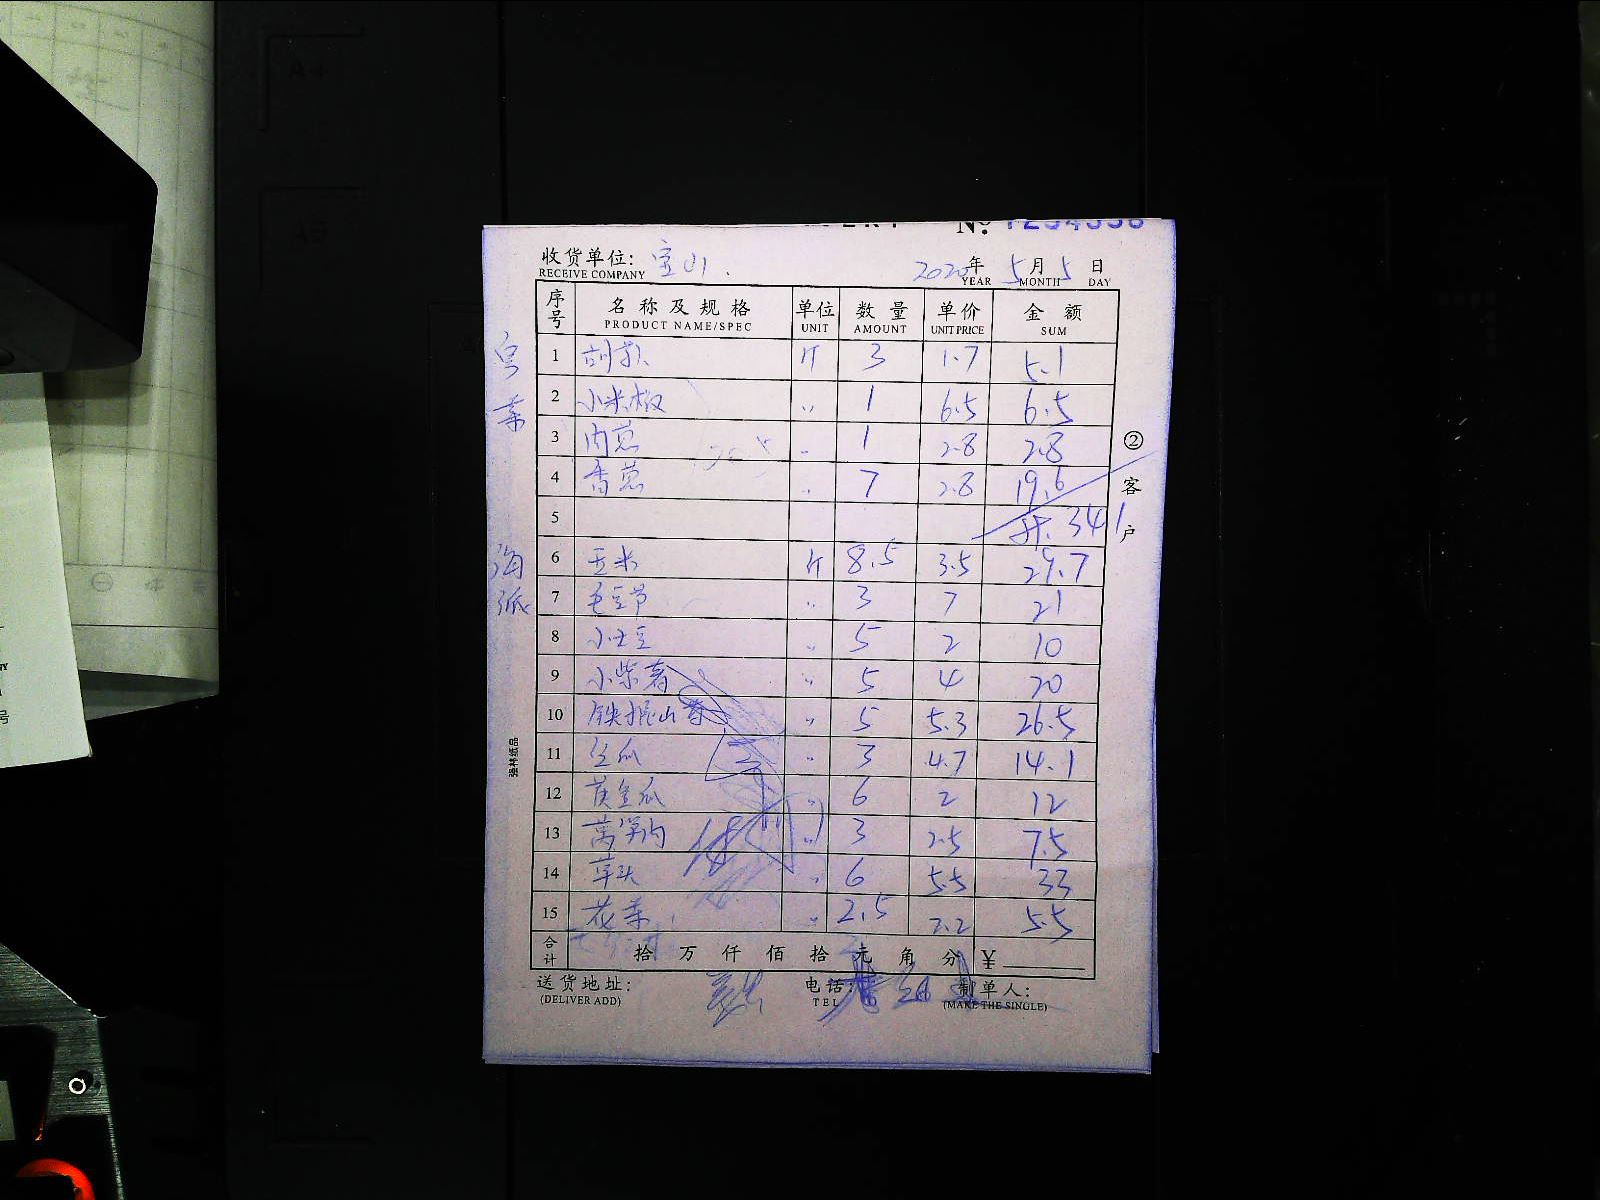 No. 1234556
收货单位: 宝山.
RECEIVE COMPANY
2020年 5月 5日
YEAR MONTH DAY
序号 名称及规格 单位 数量 单价 金额
PRODUCT NAME/SPEC UNIT AMOUNT UNIT PRICE SUM
1 斤 3 1.7 5.1
2 小米椒 〃 1 6.5 6.5
3 肉葱 〃 1 2.8 2.8
4 香葱 〃 7 2.8 19.6
5 34.1
6 玉米 斤 8.5 3.5 29.7
7 毛豆节 〃 3 7 21
8 小土豆 〃 5 2 10
9 小紫薯 〃 5 4 20
10 铁棍山药 〃 5 5.3 26.5
11 丝瓜 〃 3 4.7 14.1
12 黄金瓜 〃 6 2 12
13 莴笋 〃 3 2.5 7.5
14 草头 〃 6 5.5 33
15 花菜 〃 2.5 2.2 5.5
合计 拾 万 仟 佰 拾 元 角 分 ¥
送货地址: 电话: 制单人:
(DELIVER ADD) TEL (MAKE THE SINGLE)
②客户
海派
强林纸品